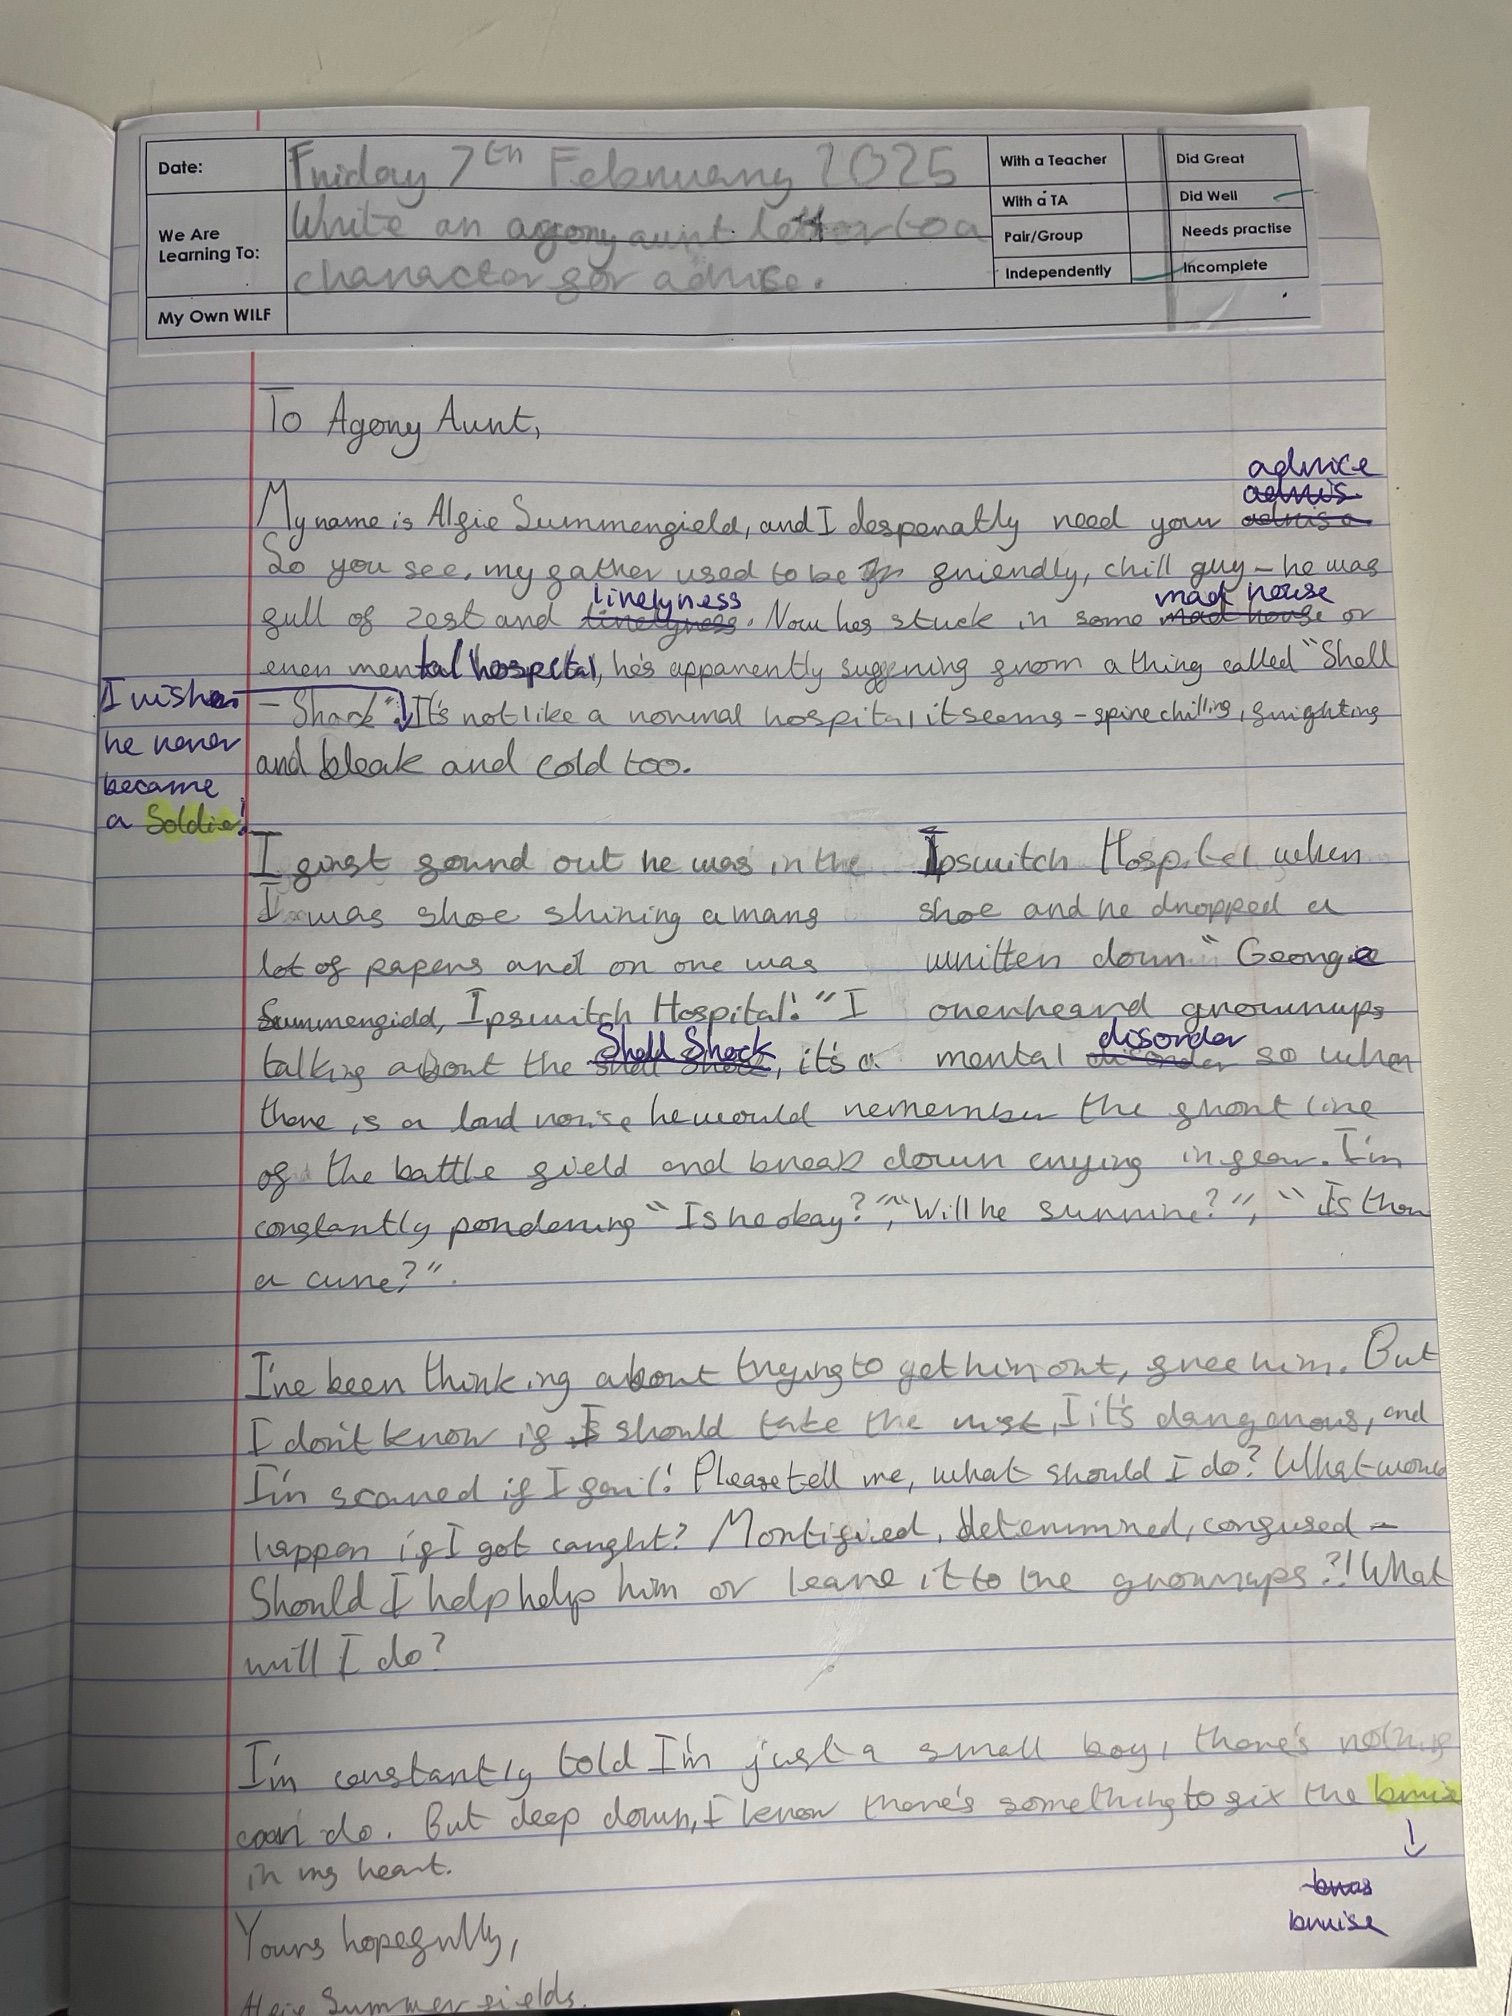 Date: Friday 7th February 2025
We Are Learning To: Write an agony aunt letter to a
character for advise.
My Own WILF
With a Teacher
With a TA
Pair/Group
Independently
Did Great
Did Well
Needs practise
Incomplete
To Agony Aunt,
advice
advis
My name is Algie Summerfield, and I desperatly need your advise
So you see, my father used to be friendly, chill guy – he was
linelyness mad house
full of zest and linelyness. Now hes stuck in some mad house or
even mental hospital, he's apparently suffering from a thing called "Shell
– Shock". It's not like a normal hospital it seems – spine chilling, frighting
and bleak and cold too.
I wish
he never
became
a Soldier!
I first found out he was in the Ipswitch Hospital when
I was shoe shining a mans shoe and he dropped a
lot of papers and on one was written down "George
Summerfield, Ipswitch Hospital!" I overheard grownups
Shell Shock disorder
talking about the shell shock, it's a mental disorder so when
there is a loud noise he would remember the front line
of the battle field and break down crying in fear. I'm
constantly pondering "Is he okay?", "Will he survive?", "Is ther
a cure?".
I've been thinking about trying to get him out, free him. But
I don't know if I should take the risk, I it's dangerous, and
I'm scared if I fail! Please tell me, what should I do? What would
happen if I got caught? Mortified, determined, confused –
Should I help help him or leave it to the grownups?! What
will I do?
I'm constantly told I'm just a small boy, there's nothing
can do. But deep down, I know there's something to fix the bruis
in my heart.
bruise
Yours hopefully,
Algie Summerfields.